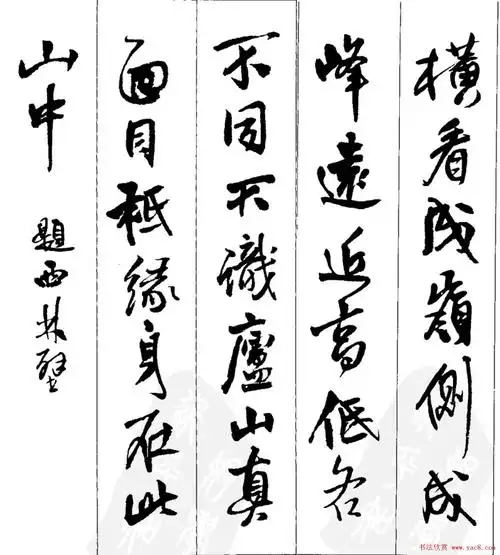 橫看成嶺側成
峰遠近高低各
不同不識廬山真
面目祗緣身在此
山中
題西林壁
书法欣赏 www.yac8.com